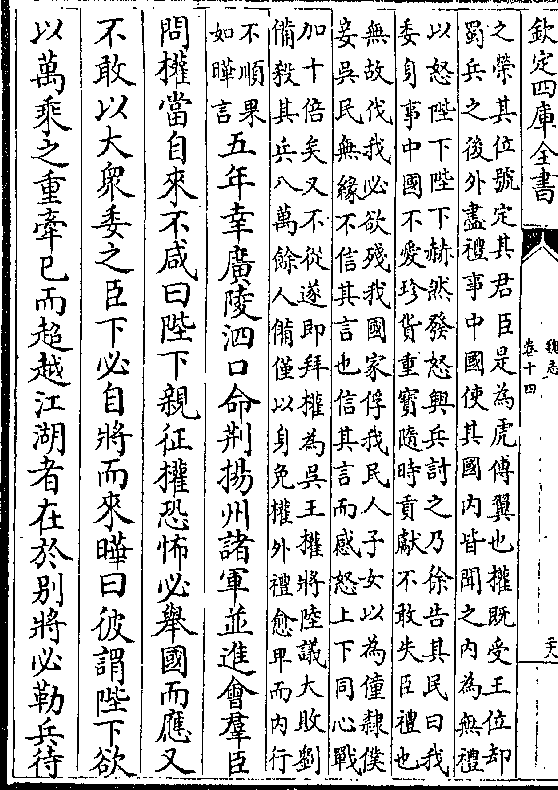 欽定四庫全書
魏志
卷十四
之榮其位號定其君臣是為虎傅翼也權既受王位却
蜀兵之後外盡禮事中國使其國內皆聞之內為無禮
以怒陛下陛下赫然發怒興兵討之乃徐告其民曰我
委身事中國不愛珍貨重寶隨時貢獻不敢失臣禮也
無故伐我必欲殘我國家俘我民人子女以為僮隸僕
妾吳民無緣不信其言也信其言而感怒上下同心戰
加十倍矣又不從遂即拜權為吳王權將陸議大敗劉
備殺其兵八萬餘人備僅以身免權外禮愈卑而內行
不順果
如曄言
五年幸廣陵泗口命荆揚州諸軍並進會羣臣
問權當自來不咸曰陛下親征權恐怖必舉國而應又
不敢以大衆委之臣下必自將而來曄曰彼謂陛下欲
以萬乘之重牽已而超越江湖者在於別將必勒兵待